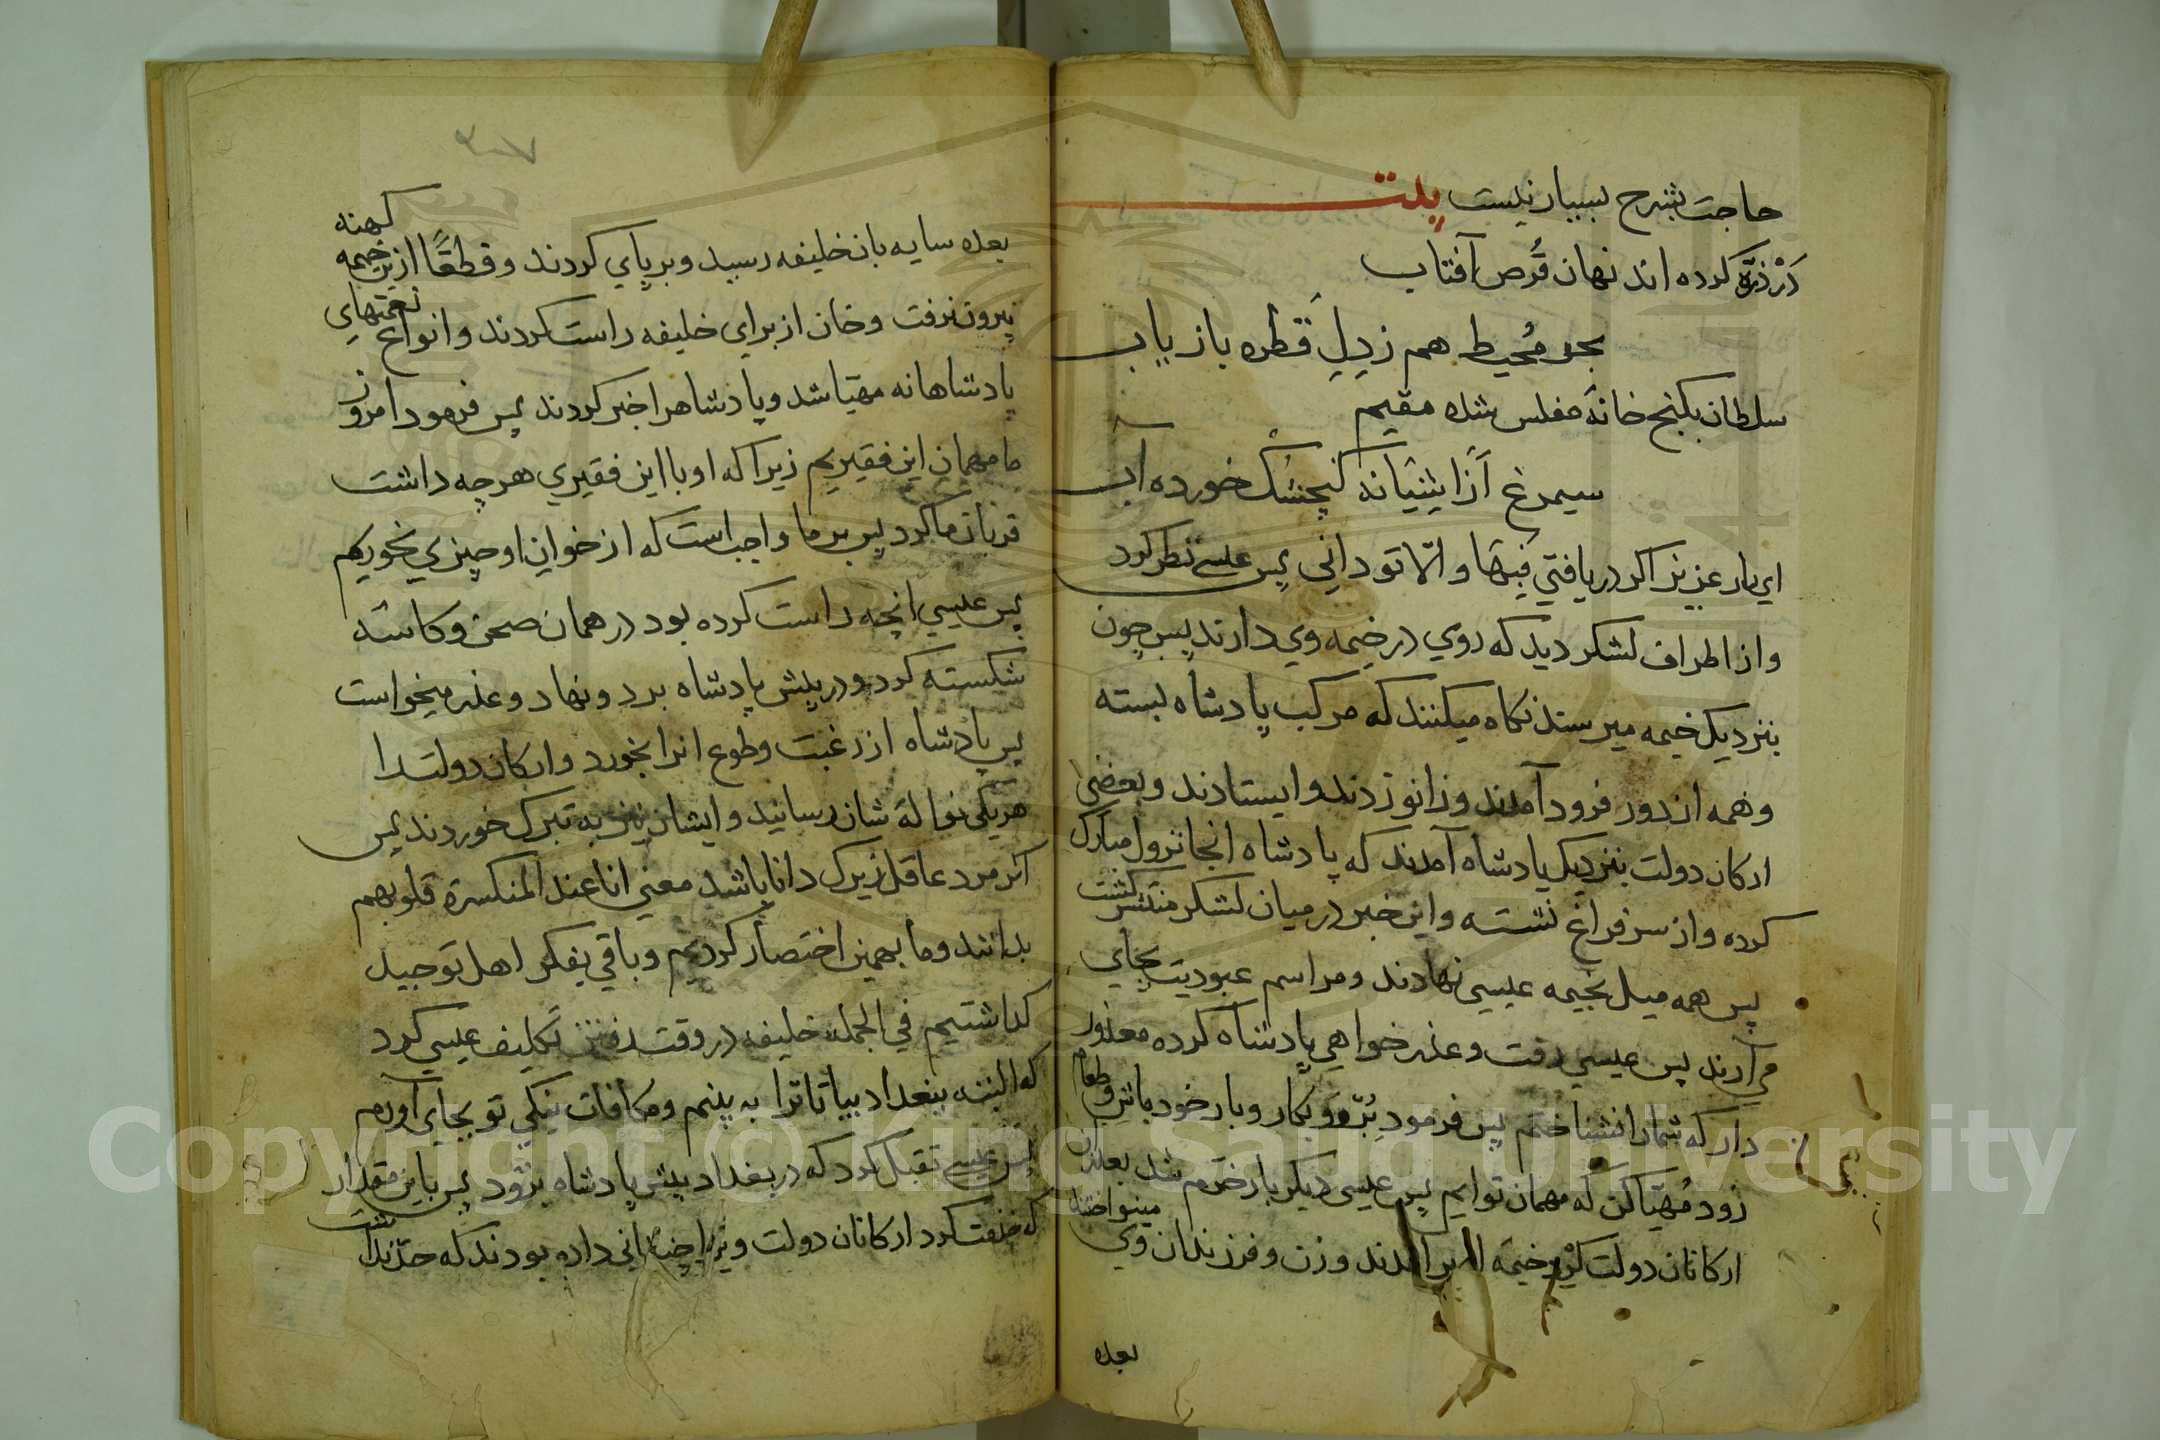 حاجت بشرح بسیار نیست بیت
دَرْ ذرّه کرده اند نهان قُرص آفتاب
بحر مُحیط هم زدِلِ قطره باز یاب
سلطان بکنج خانهٔ مفلس شده مقیم
سیمرغ از آشیانه کنجشک خورده آب
ای یار عزیز اگر دریافتي فبها والّا تو داني پس عیسی نظر کرد
واز اطراف لشکر دید که روي در خیمه وي دارند پس چون
بنزدیک خیمه میرسند نکاه میکنند که مرکب پادشاه بسته
وهمه از دور فرود آمدند وزانو زدند وایستادند وبعضی
ارکان دولت بنزدیک پادشاه آمدند که پادشاه انجا نزول مبارک
کرده واز سر فراغ نشسته واین خبر در میان لشکر منتشر کشت
پس همه میل بخیمه عیسي نهادند ومراسم عبودیت بجاي
مي آرند پس عیسي رفت وعذر خواهي پادشاه کرده معذور
دار که شمارا نشناختم پس فرمود بُرّو وبکار وبار خود باش وطعام
زود مُهیّا کن که مهمان توایم پس عیسی دیکر بار خرّم شد بعد ازان
ارکانان دولت کرد خیمه او برآمدند وزن وفرزندان وي مینواختند
بعده
٣٠٧
بعده سایه بان خلیفه رسید وبرپاي کردند وقطعًا ازین خیمه کهنه
بیرون نرفت وخان از براي خلیفه راست کردند وانواع نعمتهاي
پادشاهانه مهیّا شد وپادشاهرا خبر کردند پس فرمود امروز
ما مهمان این فقیریم زیرا که او با این فقیري هر چه داشت
قربان ما کرد پس بر ما واجب است که از خوان او چیزي بخوریم
پس عیسي انچه راست کرده بود در همان صحن وکاسهٔ
شکسته کرد ودر پیش پادشاه برد ونهاد وعذر میخواست
پس پادشاه از رغبت وطوع انرا بخورد وارکان دولت را
هر یکي نواله شان رسانید وایشان نیز به تبرک خوردند پس
اکر مرد عاقل زیرک دانا باشد معني انا عند المنکسرة قلوبهم
بدانند وما بهمین اختصار کردیم وباقي بفکر اهل توحید
کذاشتیم في الجمله خلیفه در وقت رفتن تکلیف عیسي کرد
که البته ببغداد بیا تا ترا به بینم ومکافات نیکي تو بجاي آورم
پس عیسی تقبل کرد که در بغداد پیش پادشاه برود پس باین مقدار
که خلیفه کرد ارکانان دولت ونیز چندانی داده بودند که حدّ نداشت